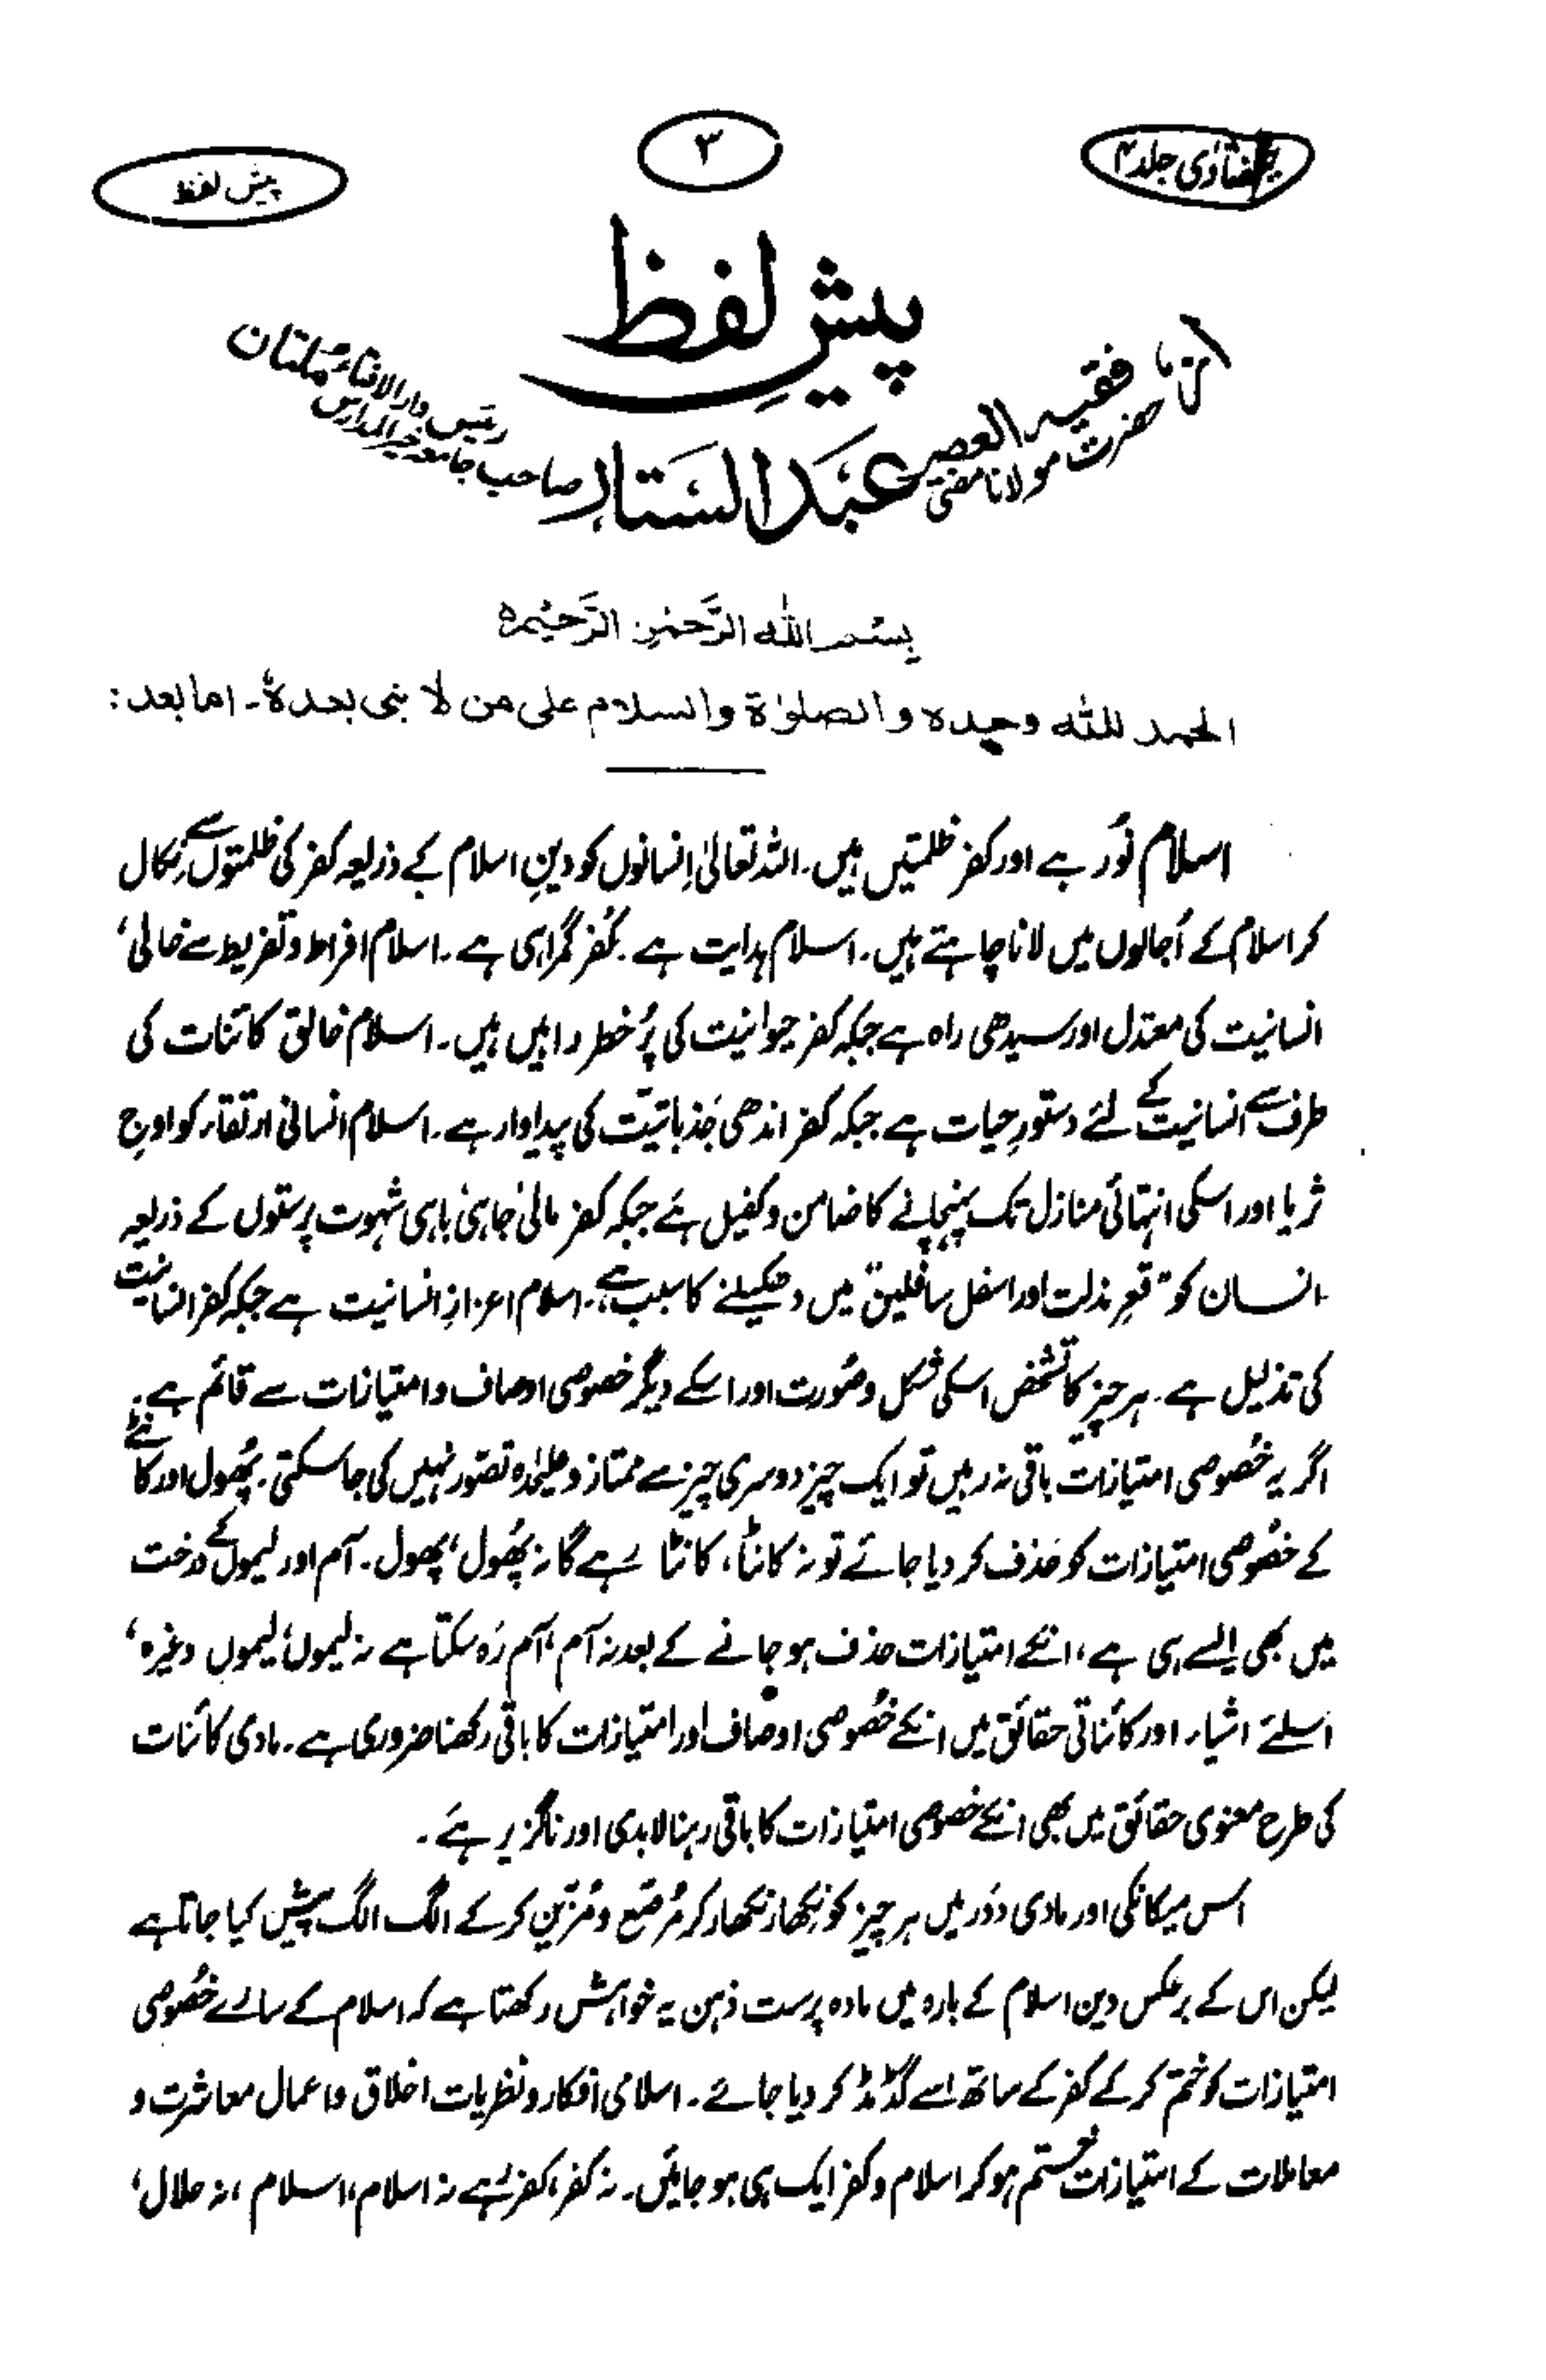 فتاوٰی جلد ۴
۳
پیش لفظ
پیشِ لفظ
از فقیہ العصر
حضرت مولانا مفتی عبدالستار صاحب رئیس دارالافتاء
جامعہ خیرالمدارس ملتان
بِسْمِ اللہِ الرَّحْمٰنِ الرَّحِیْمِ٥
الحمد للہ وحدہ والصلوٰۃ والسلام علی من لا نبی بعدہٗ۔ اما بعد:
اسلام نُور ہے اور کفر ظلمتیں ہیں۔ اللہ تعالیٰ اِنسانوں کو دینِ اسلام کے ذریعہ کفر کی ظلمتوں سے نِکال
کر اسلام کے اُجالوں میں لانا چاہتے ہیں۔ اسلام ہدایت ہے۔ کُفر گمراہی ہے۔ اسلام افراط و تفریط سے خالی،
انسانیت کی معتدل اور سیدھی راہ ہے جبکہ کفر حیوانیت کی پُرخطر راہیں ہیں۔ اسلام خالق کائنات کی
طرف سے انسانیت کے لئے دستورِ حیات ہے جبکہ کفر اندھی جَذباتیّت کی پیداوار ہے۔ اسلام انسانی ارتقاء کو اوجِ
ثریا اور اسکی انتہائی منازل تک پہنچانے کا ضامن و کفیل ہَے جبکہ کفر مالی، جاہی، باہی شہوت پرستوں کے ذریعہ
انسان کو قعرِ مذلت اور اسفل سافلین میں دھکیلنے کا سبب ہے۔ اسلام اعزازِ انسانیت ہے جبکہ کفر انسانیت
کی تذلیل ہے۔ ہر چیز کا تشخص اسکی شکل و صُورت اور اسکے دیگر خصوصی اوصاف و امتیازات سے قائم ہے۔
اگر یہ خُصوصی امتیازات باقی نہ رہیں تو ایک چیز دوسری چیز سے ممتاز و علیٰحدہ تصوّر نہیں کی جاسکتی۔ پُھول اور کانٹے
کے خصُوصی امتیازات کو حَذف کر دیا جائے تو نہ کانٹا، کانٹا رہے گا نہ پُھول، پھول۔ آم اور لیموں کے درخت
میں بھی ایسے ہی ہے، انکے امتیازات حذف ہو جانے کے بعد نہ آم، آم رَہ سکتا ہے نہ لیموں، لیموں وغیرہ،
اسلئے اشیاء اور کائناتی حقائق میں انکے خُصوصی اوصاف اور امتیازات کا باقی رکھنا ضروری ہے۔ مادی کائنات
کی طرح معنوی حقائق میں بھی انکے خصوصی امتیازات کا باقی رہنا لابدی اور ناگزیر ہَے۔
اس میکانکی اور مادی دَور میں ہر چیز کو نِکھار نکھار کر مُرصّع و مُزیّن کر کے الگ الگ پیش کیا جاتا ہے
لیکن اس کے برعکس دین اسلام کے بارہ میں مادہ پرست ذہن یہ خواہش رکھتا ہے کہ اسلام کے سارے خُصوصی
امتیازات کو ختم کر کے کفر کے ساتھ اسے گڈمڈ کر دیا جائے۔ اسلامی افکار و نظریات اخلاق و اعمال معاشرت و
معاملات کے امتیازات ختم ہو کر اسلام و کفر ایک ہی ہو جائیں۔ نہ کفر، کفر رہے نہ اسلام، اسلام، نہ حلال،